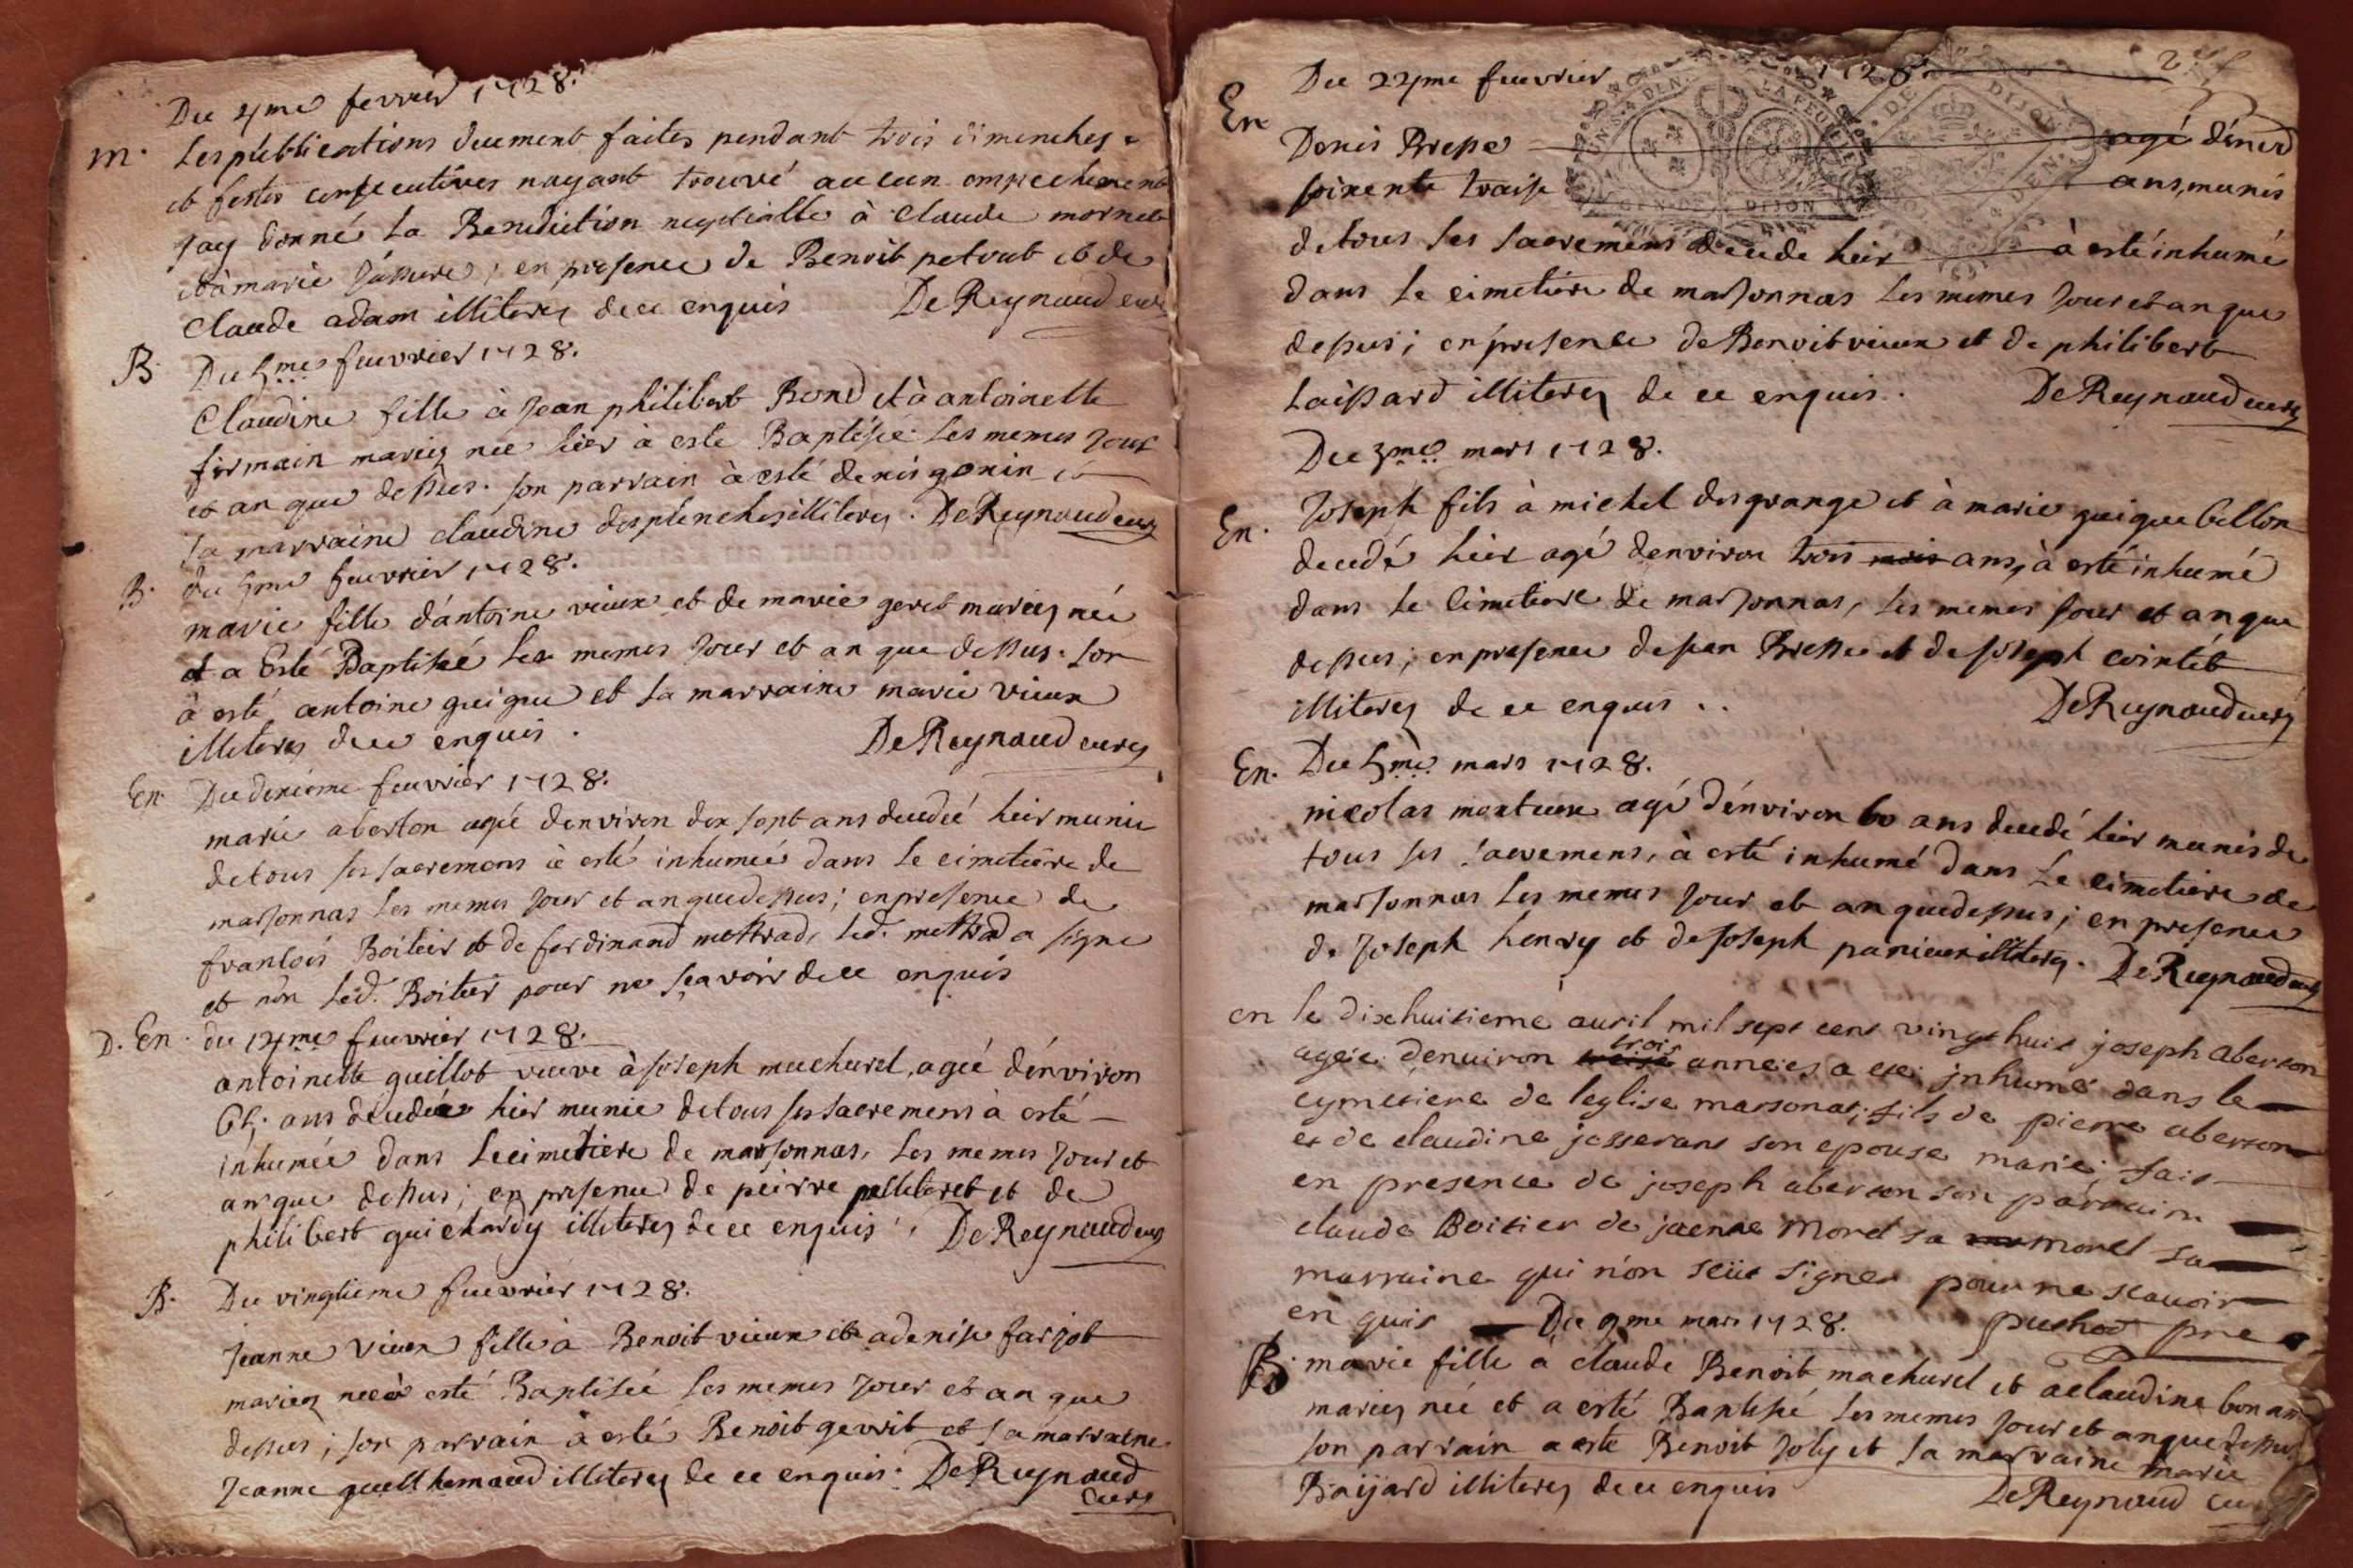 Du 4me fevrier 1728.
m. Les publications deument faites pendant trois dimenches
et festes consecutives nayant trouvé aucun empechement
jay donné la Benediction nuptialle à Claude mornet
et à marie ; en presence de Benoit petout et de
Claude adam illiteres de ce enquis DeReynaud curé
B. Du 5me feuvrier 1728.
Claudine fille à Jean philibert Bond et à antoinette
firmain mariez née hier à esté Baptisée les memes jour
et an que dessus. son parrain à esté denis gonin et
sa marraine claudine desplenches illiteres. DeReynaud curé
B. du 5me feuvrier 1728.
marie fille d'antoine vieux et de marie geret mariez née
et a Esté Baptisée les memes jour et an que dessus. son
à esté antoine guigue et sa marraine marie vieux
illiteres de ce enquis. DeReynaud curé
En. Du dixieme feuvrier 1728.
marie aberton agée denviron dix sept ans decedée hier munie
de tous ses sacremens à esté inhumée dans le cimetière de
marsonnas les memes jour et an que dessus; en presence de
francois Boitier et de ferdinand mettrad, led. mettrad a signe
et non led. Boitier pour ne sçavoir de ce enquis
D. En. du 14me feuvrier 1728.
antoinette guillot veuve à joseph muchurel, agée d'environ
65. ans decedée hier munie de tous ses sacremens à esté
inhumée dans le cimetiere de marsonnas, les memes jour et
an que dessus; en presence de peirre pelleteret et de
philibert guichardy illiteres de ce enquis. DeReynaud curé
B. Du vingtieme feuvrier 1728.
Jeanne vieux fille à Benoit vieux et a denise farjot
mariez née à esté Baptisée les memes jour et an que
dessus; son parrain à esté Benoit gevrit et sa marraine
Jeanne guilhemaud illiteres de ce enquis. DeReynaud
curé
Du 22me feuvrier 1728.
En Denis Bresse agé d'environ
soixente traise ans, munis
de tous ses sacremens decede hier à esté inhumé
dans le cimetière de marsonnas les memes jour et an que
dessus; en presence de Benoit vieux et de philibert
Laissard illiteres de ce enquis. DeReynaud curé
Du 3me mars 1728.
En. Joseph fils à michel desgrange et à marie guigue bellon
decedé hier agé denviron trois mois ans, à esté inhumé
dans le cimetiere de marsonnas, les memes jour et an que
dessus; en presence de jean Bresse et de joseph cointet
illiteres de ce enquis.. DeReynaud curé
En. Du 5me mars 1728.
nicolas montueux agé d'environ 60 ans decedé hier munis de
tous ses sacremens, à esté inhumé dans le cimetiere de
marsonnas les memes jour et an que dessus; en presence
de joseph henry et de joseph panieux illiteres. DeReynaud curé
en le dixhuitieme auril mil sept cent vingt huit joseph aberton
trois
agée denuiron années a ete jnhume dans le
cymetiere de leglise marsonas; fils de pierre aberton
et de claudine josserans son epouse marié; fait
en presence de joseph aberton son parrain
claude Boitier de jaenne Morel sa morel sa
marraine qui n'on seüe signer pour ne scauoir
en quis puchod pre
Du 9me mars 1728.
B. marie fille a claude Benoit machurel et a claudine bonan
mariez née et a esté Baptisé les memes jour et an que dessus
son parrain a este Benoit joly et sa marraine marie
Baijard illiteres de ce enquis DeReynaud curé
GEN. DE DIJON